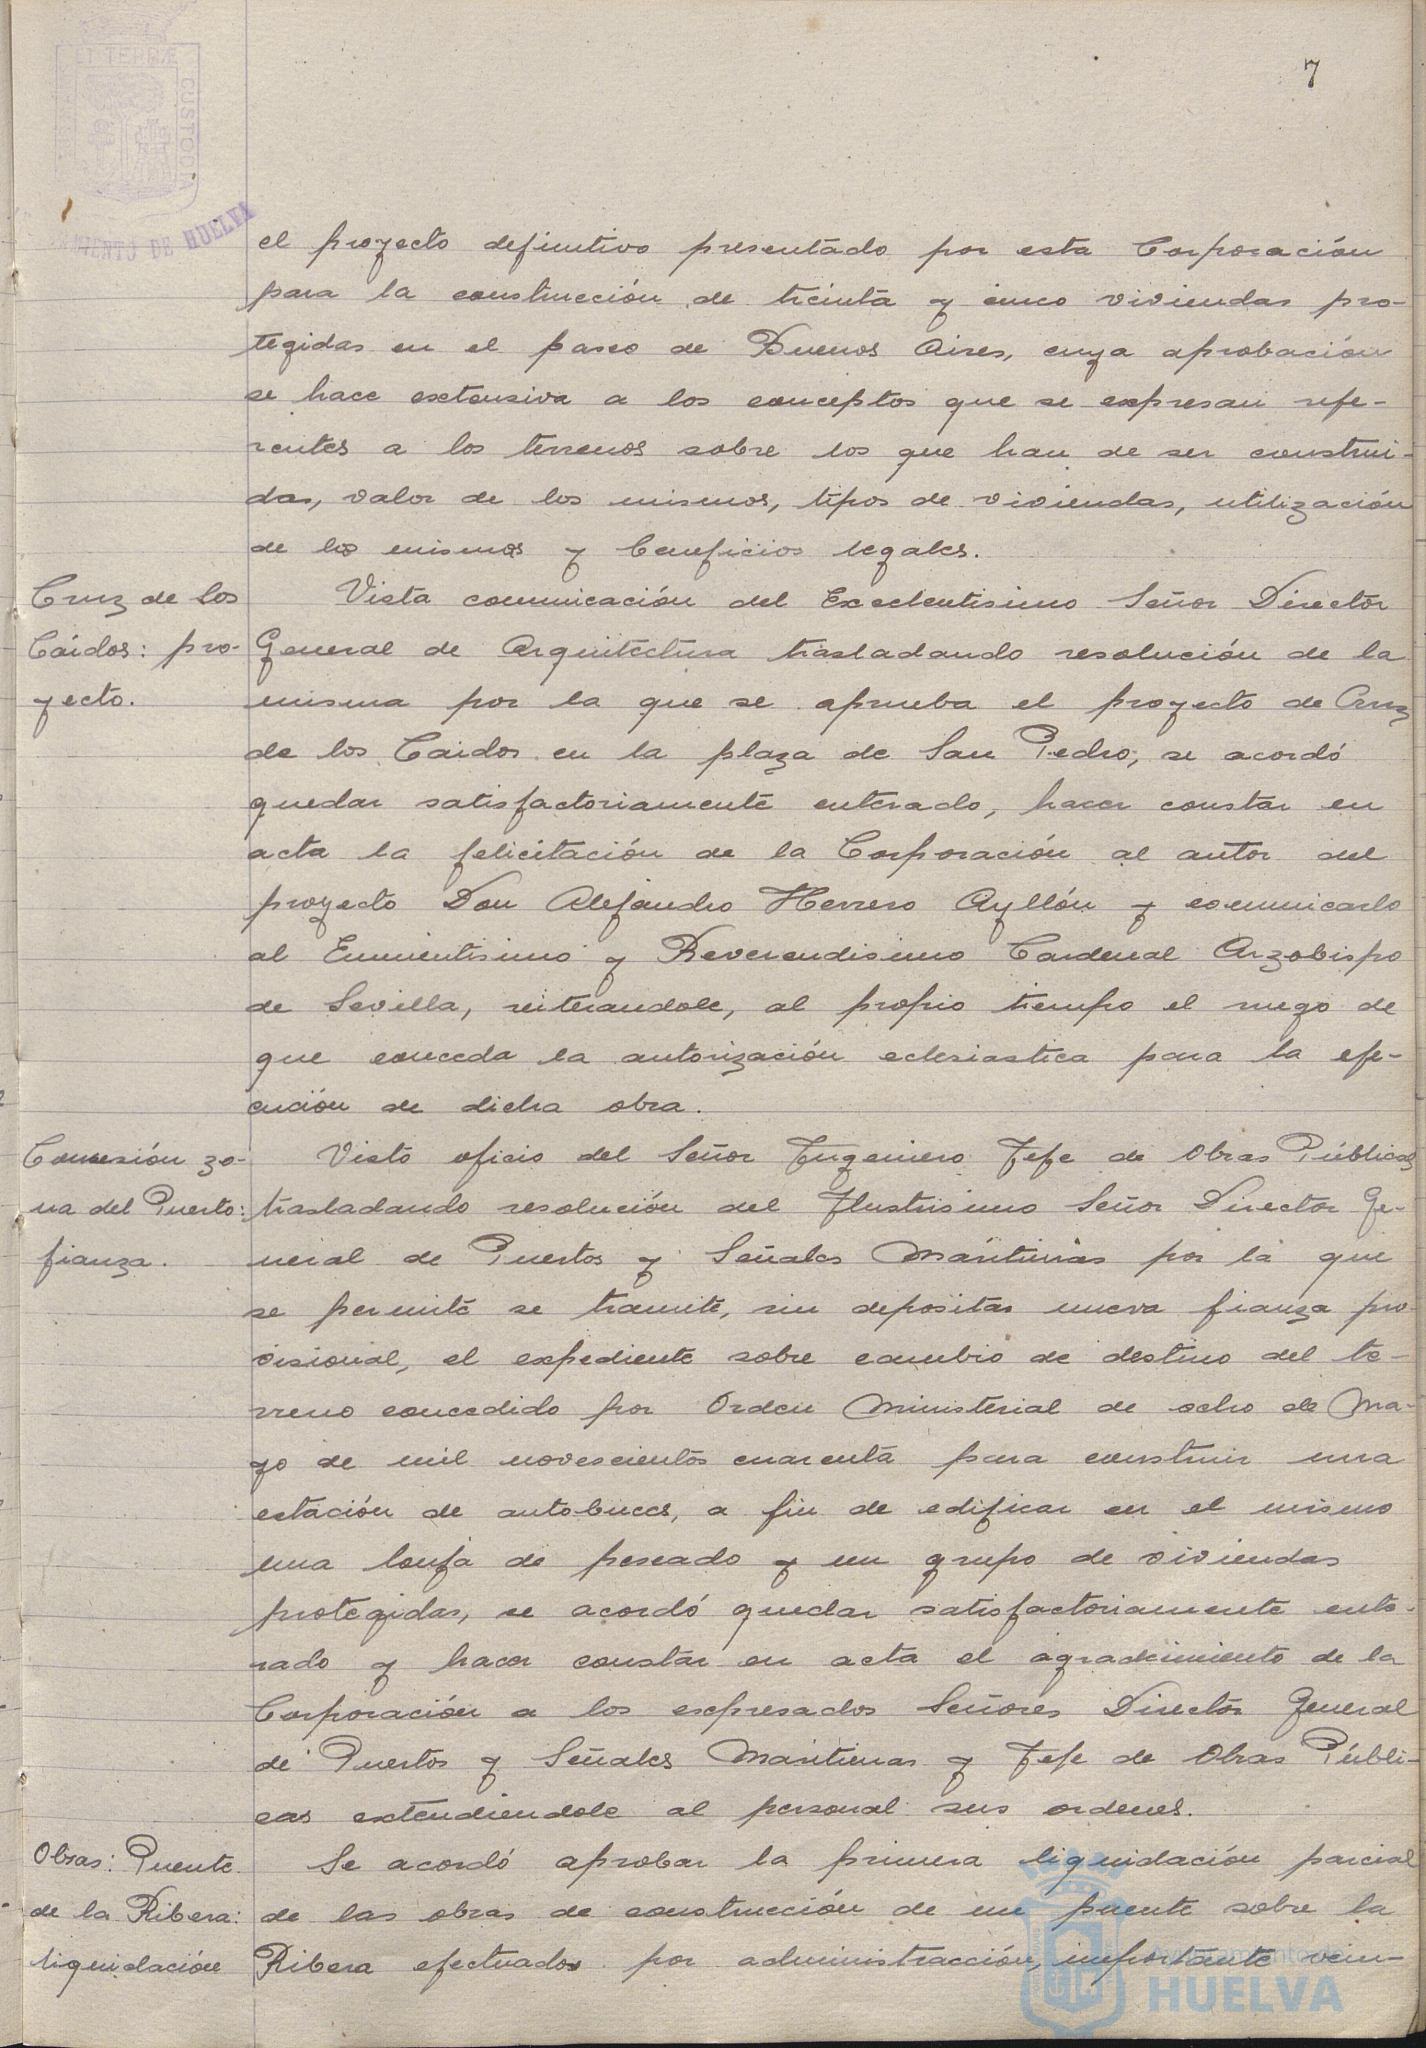 7
ET TERRÆ
CUSTODIA
AMIENTO DE HUELVA
el proyecto definitivo presentado por esta Corporación
para la construcción de treinta y cinco viviendas pro-
tegidas en el paseo de Buenos Aires, cuya aprobación
se hace extensiva a los conceptos que se expresan refe-
rentes a los terrenos sobre los que han de ser construi-
das, valor de los mismos, tipos de viviendas, utilización
de los mismos y beneficios legales.
Cruz de los
Caidos: pro-
yecto.
Vista comunicación del Excelentisimo Señor Director
General de Arquitectura trasladando resolución de la
misma por la que se aprueba el proyecto de Cruz
de los Caidos en la plaza de San Pedro, se acordó
quedar satisfactoriamente enterado, hacer constar en
acta la felicitación de la Corporación al autor del
proyecto Don Alejandro Herrero Ayllón y comunicarlo
al Eminentisimo y Reverendisimo Cardenal Arzobispo
de Sevilla, reiterandole, al propio tiempo el ruego de
que conceda la autorización eclesiastica para la eje-
cución de dicha obra.
Concesión zo-
na del Puerto:
fianza.
Visto oficio del Señor Ingeniero Jefe de Obras Públicas
trasladando resolución del Ilustrisimo Señor Director Ge-
neral de Puertos y Señales Maritimas por la que
se permite se tramite, sin depositar nueva fianza pro-
visional, el expediente sobre cambio de destino del te-
rreno concedido por Orden Ministerial de ocho de Ma-
yo de mil novescientos cuarenta para construir una
estación de autobuces, a fin de edificar en el mismo
una lonja de pescado y un grupo de viviendas
protegidas, se acordó quedar satisfactoriamente ente-
rado y hacer constar en acta el agradecimiento de la
Corporación a los expresados Señores Director General
de Puertos y Señales Maritimas y Jefe de Obras Públi-
cas extendiendole al personal sus ordenes.
Obras: Puente
de la Ribera:
liquidación
Se acordó aprobar la primera liquidación parcial
de las obras de construcción de un puente sobre la
Ribera efectuados por administracción, importante vein-
Ayuntamiento de
HUELVA